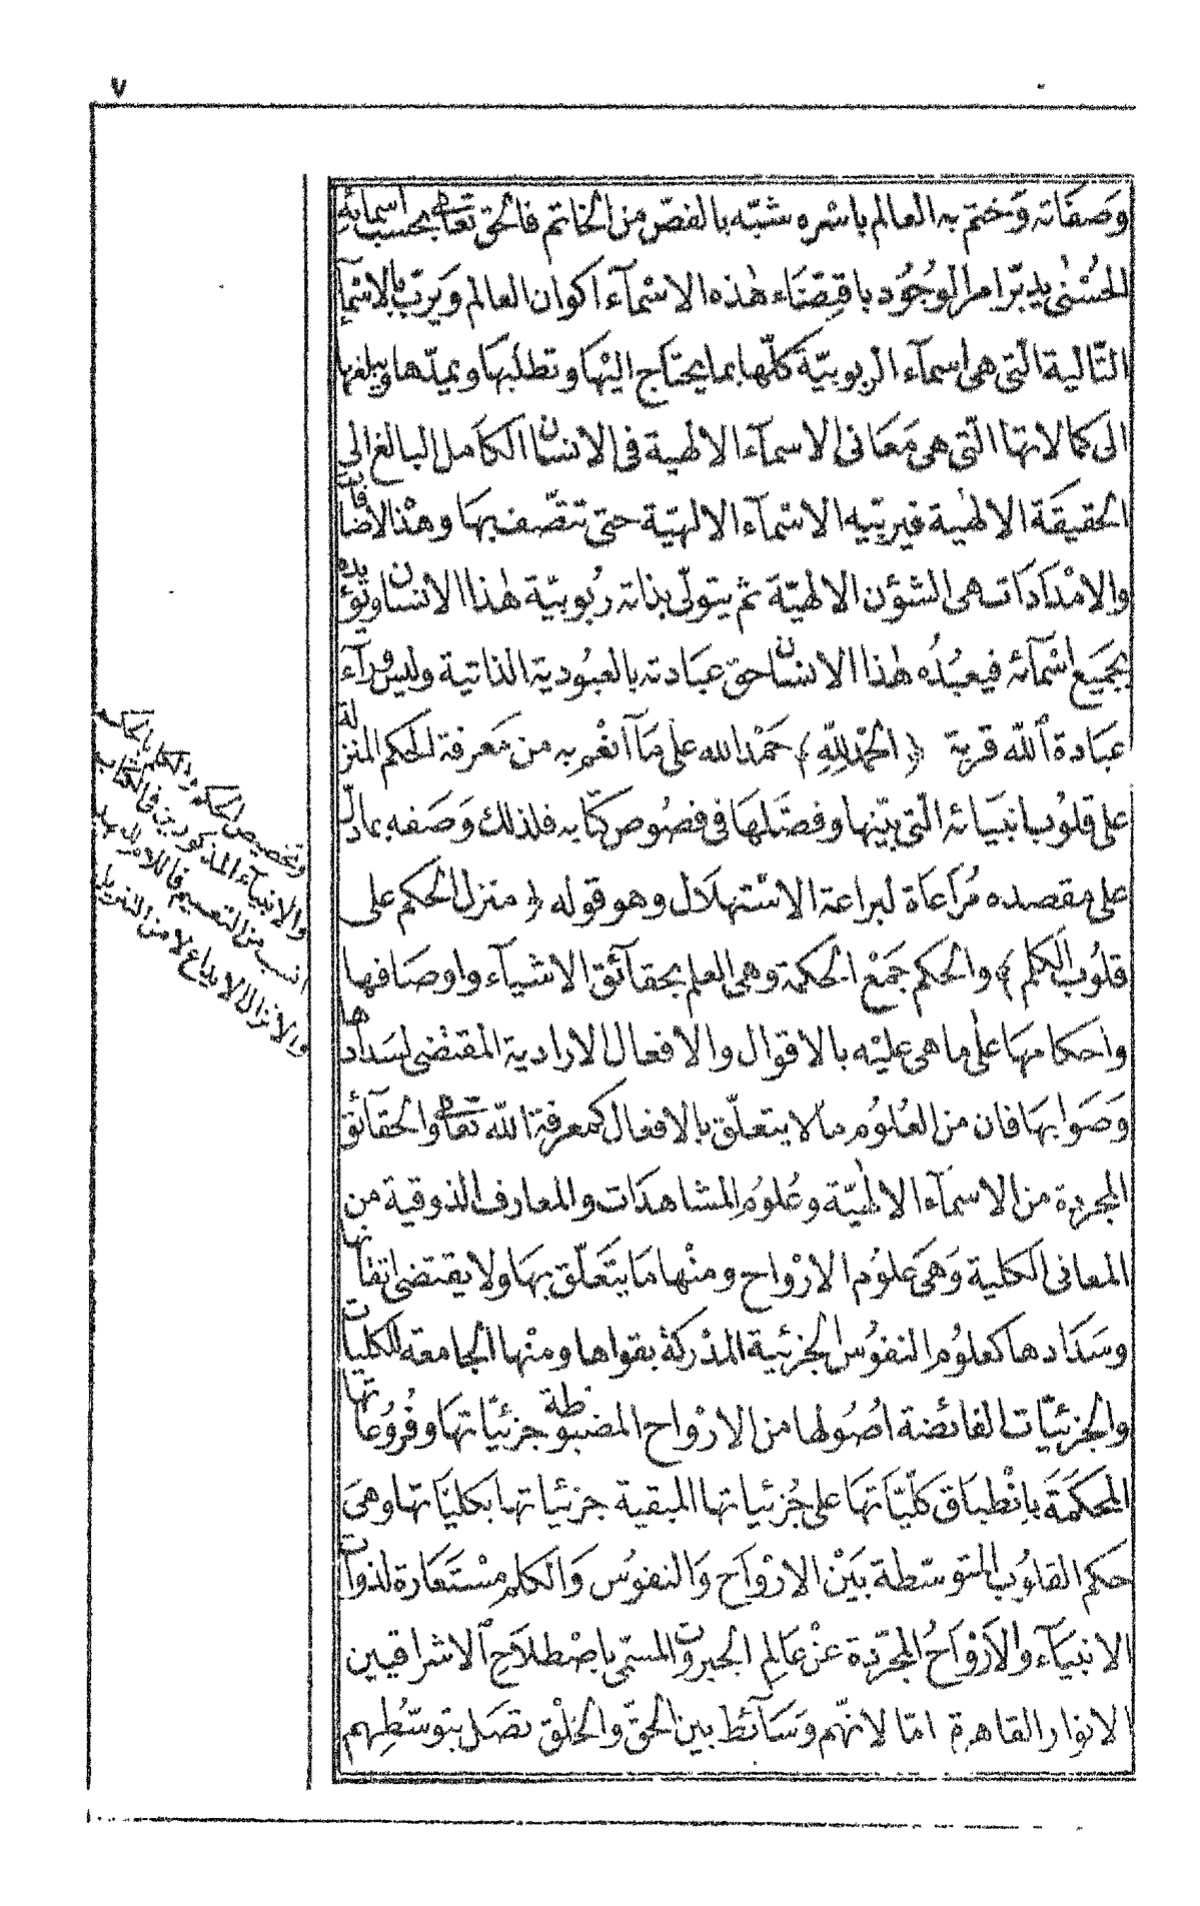 ٧
وصفاته وختم به العالم باسره شبّه بالفصّ من الخاتم فالحق تعالى بحسب اسمائه
الحسنى يدبّر امر الوجود باقتضاء هذه الاسمآء اكوان العالم ويربّ بالاسمآ
التّالية الّتى هى اسمآء الربوبيّة كلّها بما يحتاج اليها وتطلبها ويمدّها ويبلغها
الى كمالاتها الّتى هى معانى الاسمآء الالهية فى الانسان الكامل البالغ الى
الحقيقة الالهية فيربّيه الاسمآء الالهيّة حتى تتّصف بها وهذه الاضافات
والامدادات هى الشؤن الالهيّة ثم يتولّى بذاته ربوبيّة هذا الانسان ويؤيده
بجميع اسمآئه فيعبده هذا الانسان حق عبادته بالعبودية الذاتية وليس ورآء
عبادة الله قربة ﴿ الحمد لله ﴾ حمد الله على مآ انعم به من معرفة الحكم المنزلة
على قلوب انبيائه الّتى بيّنها وفصّلها فى فصوص كتابه فلذلك وصفه بما دلّ
على مقصده مراعاة لبراعة الاستهلال وهو قوله ﴿ منزل الحكم على
قلوب الكلم ﴾ والحكم جمع الحكمة وهى العلم بحقآئق الاشيآء واوصافها
واحكامها على ما هى عليه بالاقوال والافعال الارادية المقتضى لسدادها
وصوابها فان من العلوم ما لا يتعلّق بالافعال كمعرفة الله تعالى والحقآئق
المجردة من الاسمآء الالهيّة وعلوم المشاهدات والمعارف الذوقية من
المعانى الكلية وهى علوم الارواح ومنها ما يتعلّق بها ولا يقتضى اتقانها
وسدادها كعلوم النفوس الجزئية المدركة بقواها ومنها الجامعة للكليات
والجزئيّات الفائضة اصولها من الارواح المضبوطة جزئيّاتها وفروعاتها
المحكمة بانطباق كلّيّاتها على جزئياتها المبقية جزئياتها بكليّاتها وهى
حكم القلوب المتوسّطة بين الارواح والنفوس والكلم مستعارة لذوات
الانبيآء والارواح المجرّدة عن عالم الجبروت المسمّى باصطلاح الاشراقيين
الانوار القاهرة امّا لانّهم وسآئط بين الحقّ والخلق تصل بتوسّطهم
وتخصيص الحكم والكلم بالحكمة
والانبيآء المذكورين فى الكتاب
انسب من التعميم فاللام للعهد
والانزال الابداع لا من التنزيل